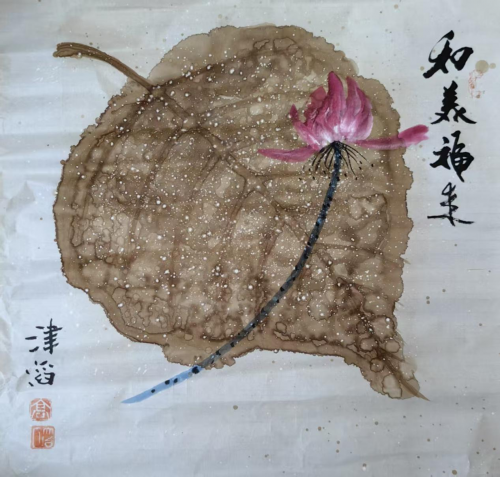 和美福来
津滔